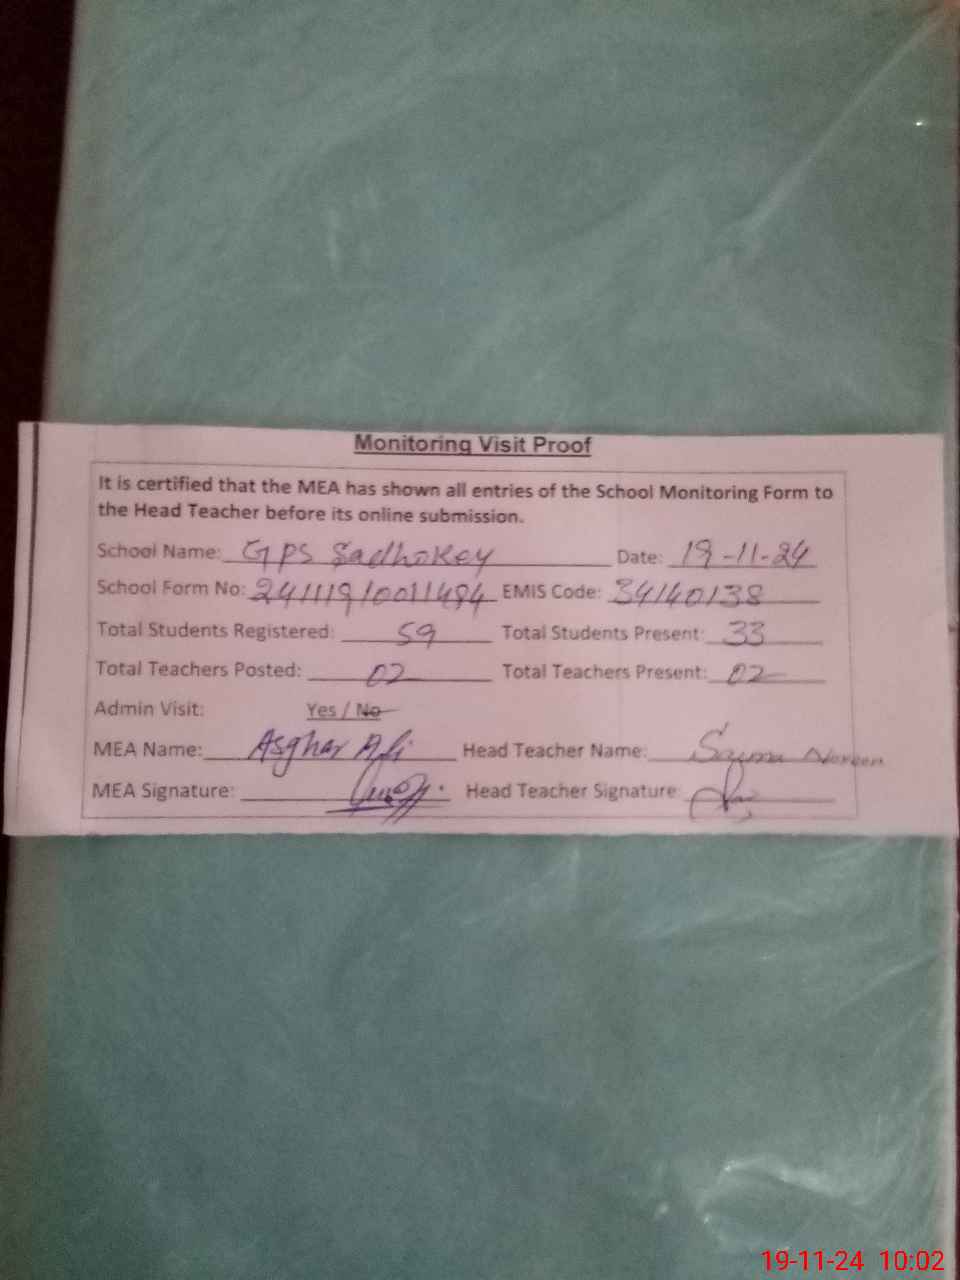 Monitoring Visit Proof
It is certified that the MEA has shown all entries of the School Monitoring Form to
the Head Teacher before its online submission.
School Name: GPS Sadhokey Date: 19-11-24
School Form No: 24111910011494 EMIS Code: 34140138
Total Students Registered: 59 Total Students Present: 33
Total Teachers Posted: 02 Total Teachers Present: 02
Admin Visit: Yes / No
MEA Name: Asghar Ali Head Teacher Name: Saima Noreen
MEA Signature: Head Teacher Signature:
19-11-24 10:02